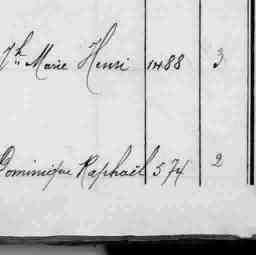 Jh Marie Henri 1488 3
Dominique Raphaël 574 2